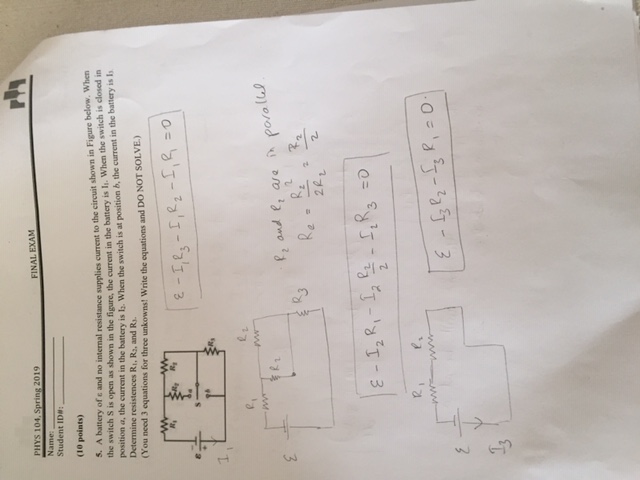 PHYS 104, Spring 2019 FINAL EXAM
Name:
Student ID#:
(10 points)
5. A battery of ε and no internal resistance supplies current to the circuit shown in Figure below. When
the switch S is open as shown in the figure, the current in the battery is I₁. When the switch is closed in
position a, the current in the battery is I₂. When the switch is at position b, the current in the battery is I₃.
Determine resistences R₁, R₂, and R₃.
(You need 3 equations for three unkowns! Write the equations and DO NOT SOLVE.)
R₁ R₂ R₂
a
ε S
b
R₃
I₁
ε - I₁R₃ - I₁R₂ - I₁R₁ = 0
R₁ R₂
ε R₂
R₃
R₂ and R₂ are in parallel.
Re = R₂² / 2R₂ = R₂ / 2
ε - I₂R₁ - I₂ R₂/2 - I₂R₃ = 0
R₁ R₂
ε
I₃
ε - I₃R₂ - I₃R₁ = 0.